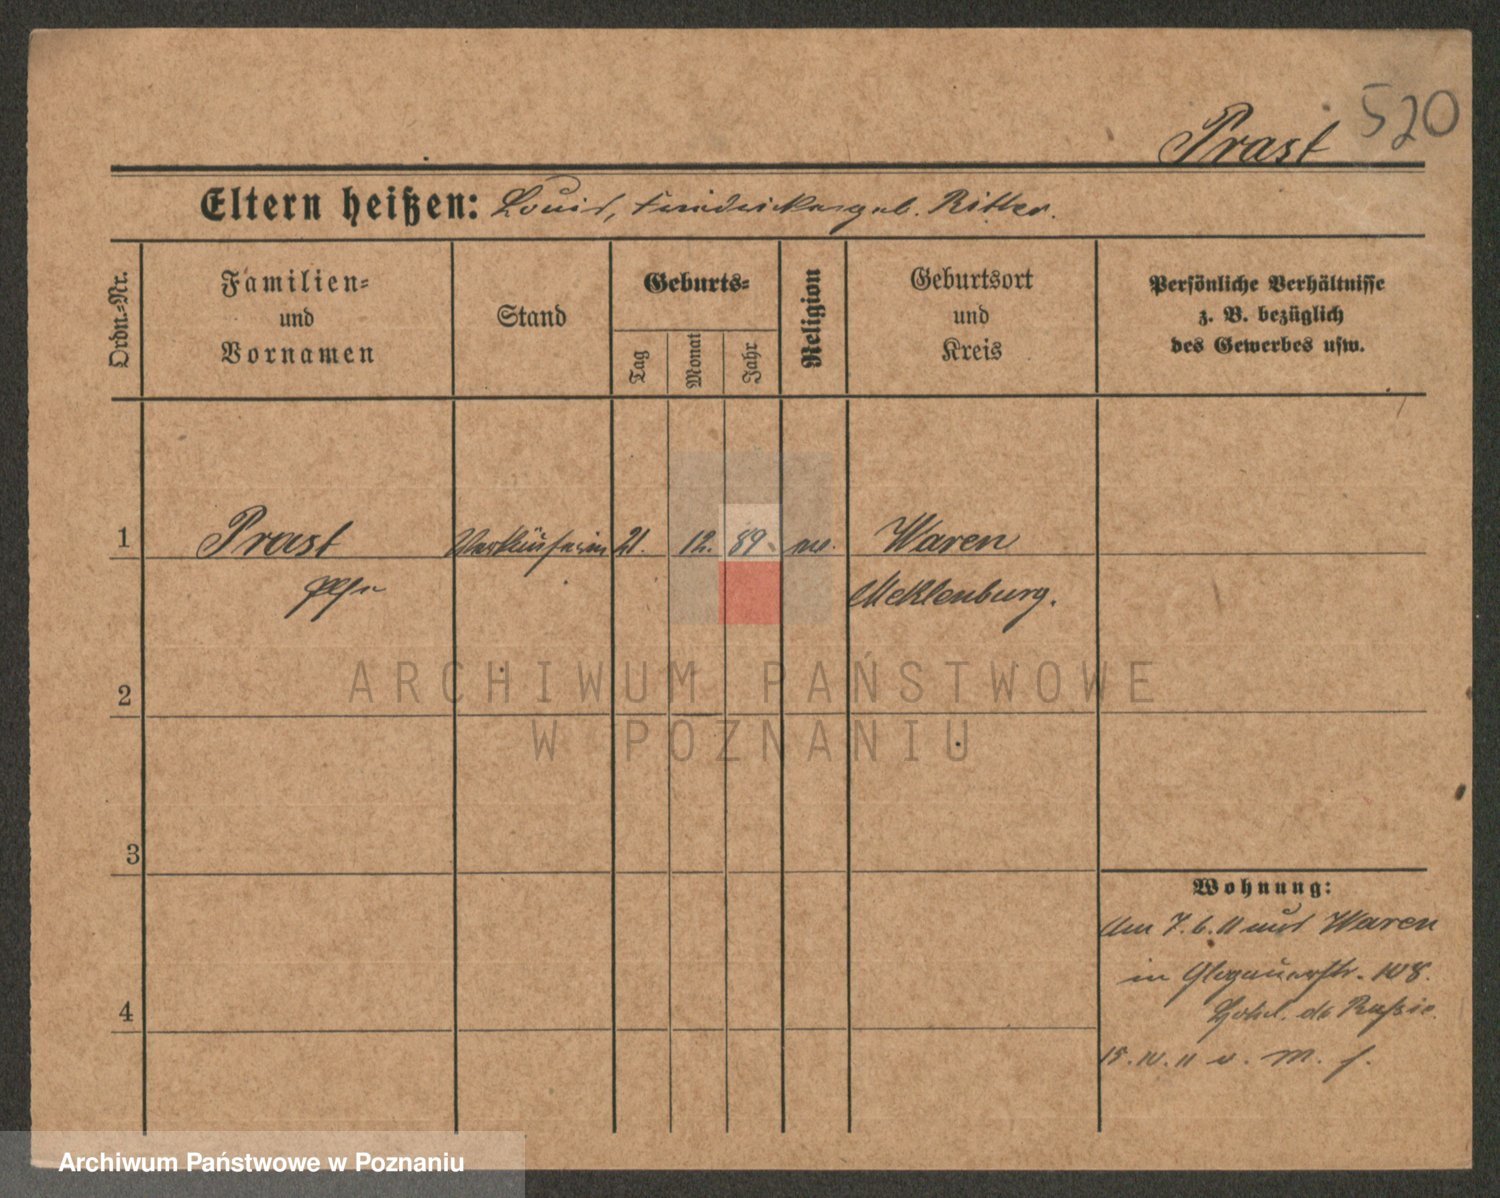 520
Prast
Eltern heißen: Louis, Friedricke geb. Ritter.
Ordn.-Nr.
Familien-
und
Vornamen
Stand
Geburts-
Tag
Monat
Jahr
Religion
Geburtsort
und
Kreis
Persönliche Verhältnisse
z. B. bezüglich
des Gewerbes usw.
1 Prast Verkäuferin 21. 12. 89. Waren
Mecklenburg.
2
ARCHIWUM PAŃSTWOWE
W POZNANIU
3
4
Wohnung:
Am 7. 6. 11 aus Waren
in Glogauerstr. 108.
Hotel de Russie.
15. 10. 11 v.
Archiwum Państwowe w Poznaniu